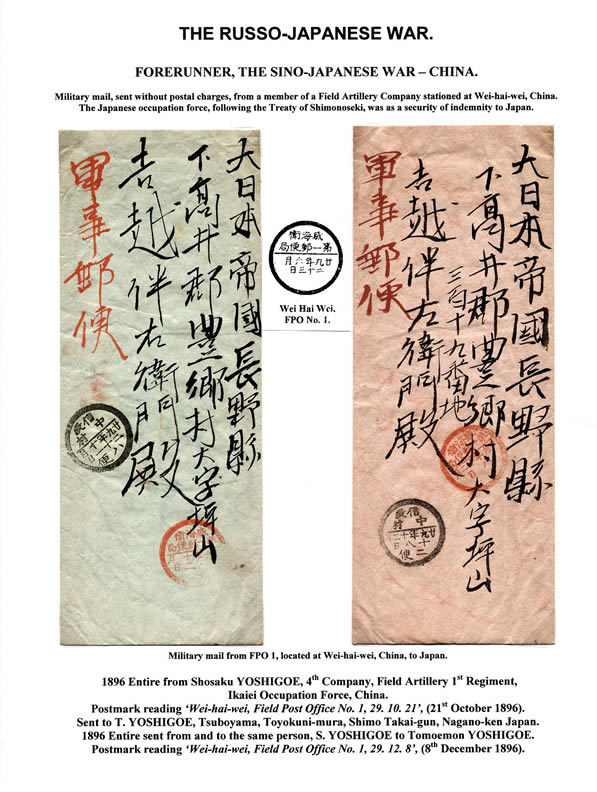 THE RUSSO-JAPANESE WAR.
FORERUNNER, THE SINO-JAPANESE WAR – CHINA.
Military mail, sent without postal charges, from a member of a Field Artillery Company stationed at Wei-hai-wei, China.
The Japanese occupation force, following the Treaty of Shimonoseki, was as a security of indemnity to Japan.
大日本帝國長野縣
下高井郡豊郷村大字坪山
吉越伴右衛門殿
軍事郵便
威海衛
第一郵便局
廿九年六月
二十三日
Wei Hai Wei.
FPO No. 1.
大日本帝國長野縣
下高井郡豊郷村大字坪山
三百十九番地
吉越伴左衛門殿
軍事郵便
Military mail from FPO 1, located at Wei-hai-wei, China, to Japan.
1896 Entire from Shosaku YOSHIGOE, 4th Company, Field Artillery 1st Regiment,
Ikaiei Occupation Force, China.
Postmark reading ‘Wei-hai-wei, Field Post Office No. 1, 29. 10. 21’, (21st October 1896).
Sent to T. YOSHIGOE, Tsuboyama, Toyokuni-mura, Shimo Takai-gun, Nagano-ken Japan.
1896 Entire sent from and to the same person, S. YOSHIGOE to Tomoemon YOSHIGOE.
Postmark reading ‘Wei-hai-wei, Field Post Office No. 1, 29. 12. 8’, (8th December 1896).